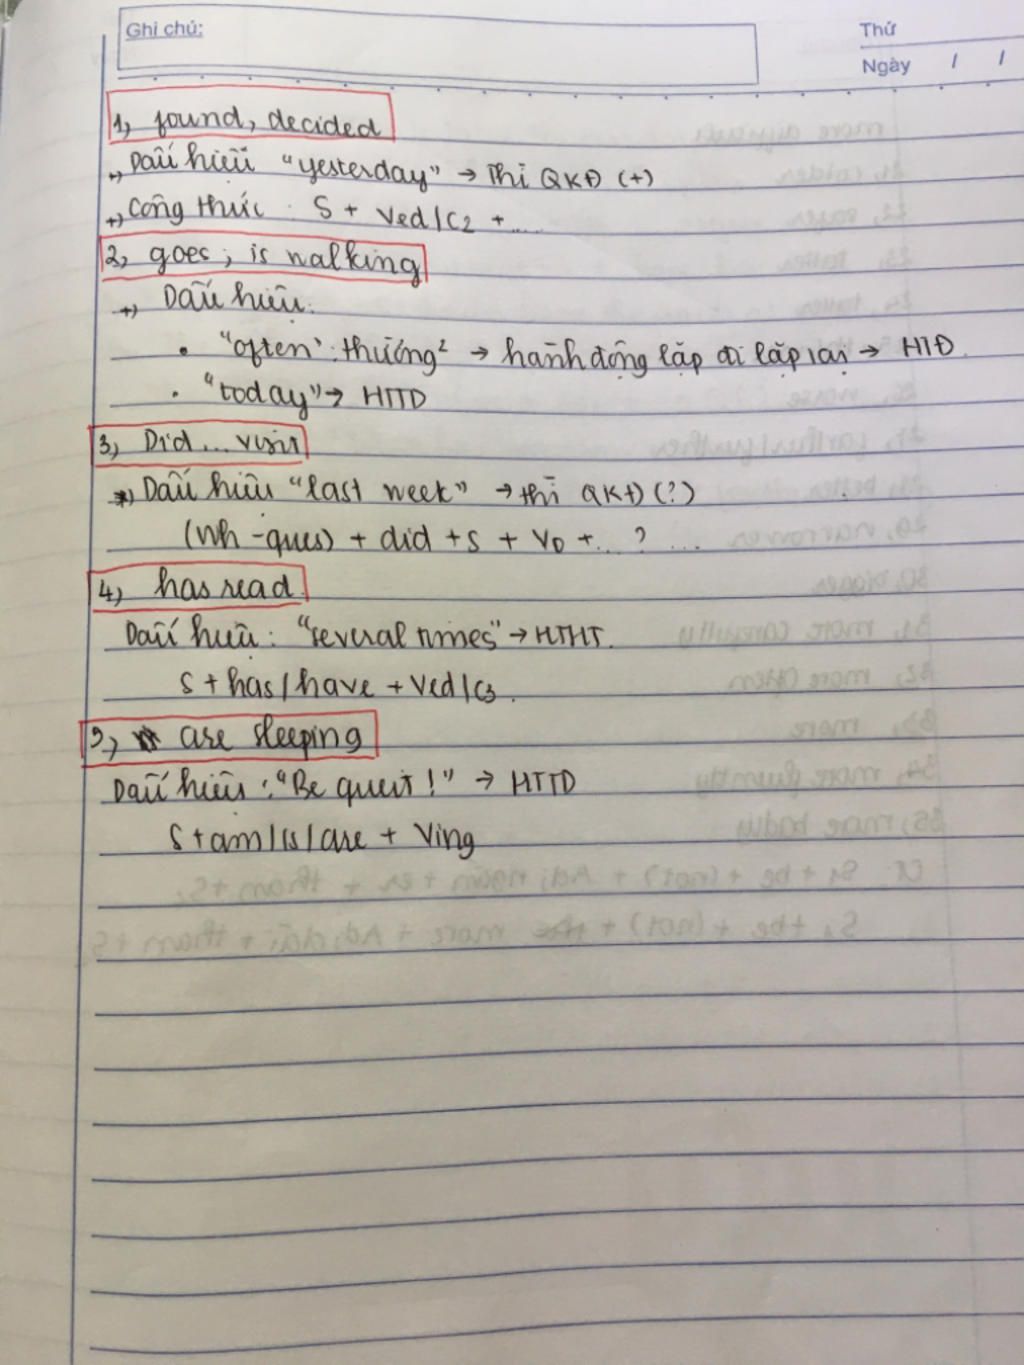 Ghi chú:
Thứ
Ngày / /
1, found, decided
+, Dấu hiệu "yesterday" → Thì QKĐ (+)
+, Công thức: S + Ved/C2 + ....
2, goes; is walking
+, Dấu hiệu:
• "often": thường² → hành động lặp đi lặp lại → HTĐ.
• "today" → HTTD
3, Did ... visit
*, Dấu hiệu "last week" → thì QKĐ (?)
(Wh-ques) + did + S + V0 + ... ? ...
4, has read.
Dấu hiệu: "several times" → HTHT.
S + has/have + Ved/C3.
5, are sleeping
Dấu hiệu: "Be queit!" → HTTD
S + am/is/are + Ving